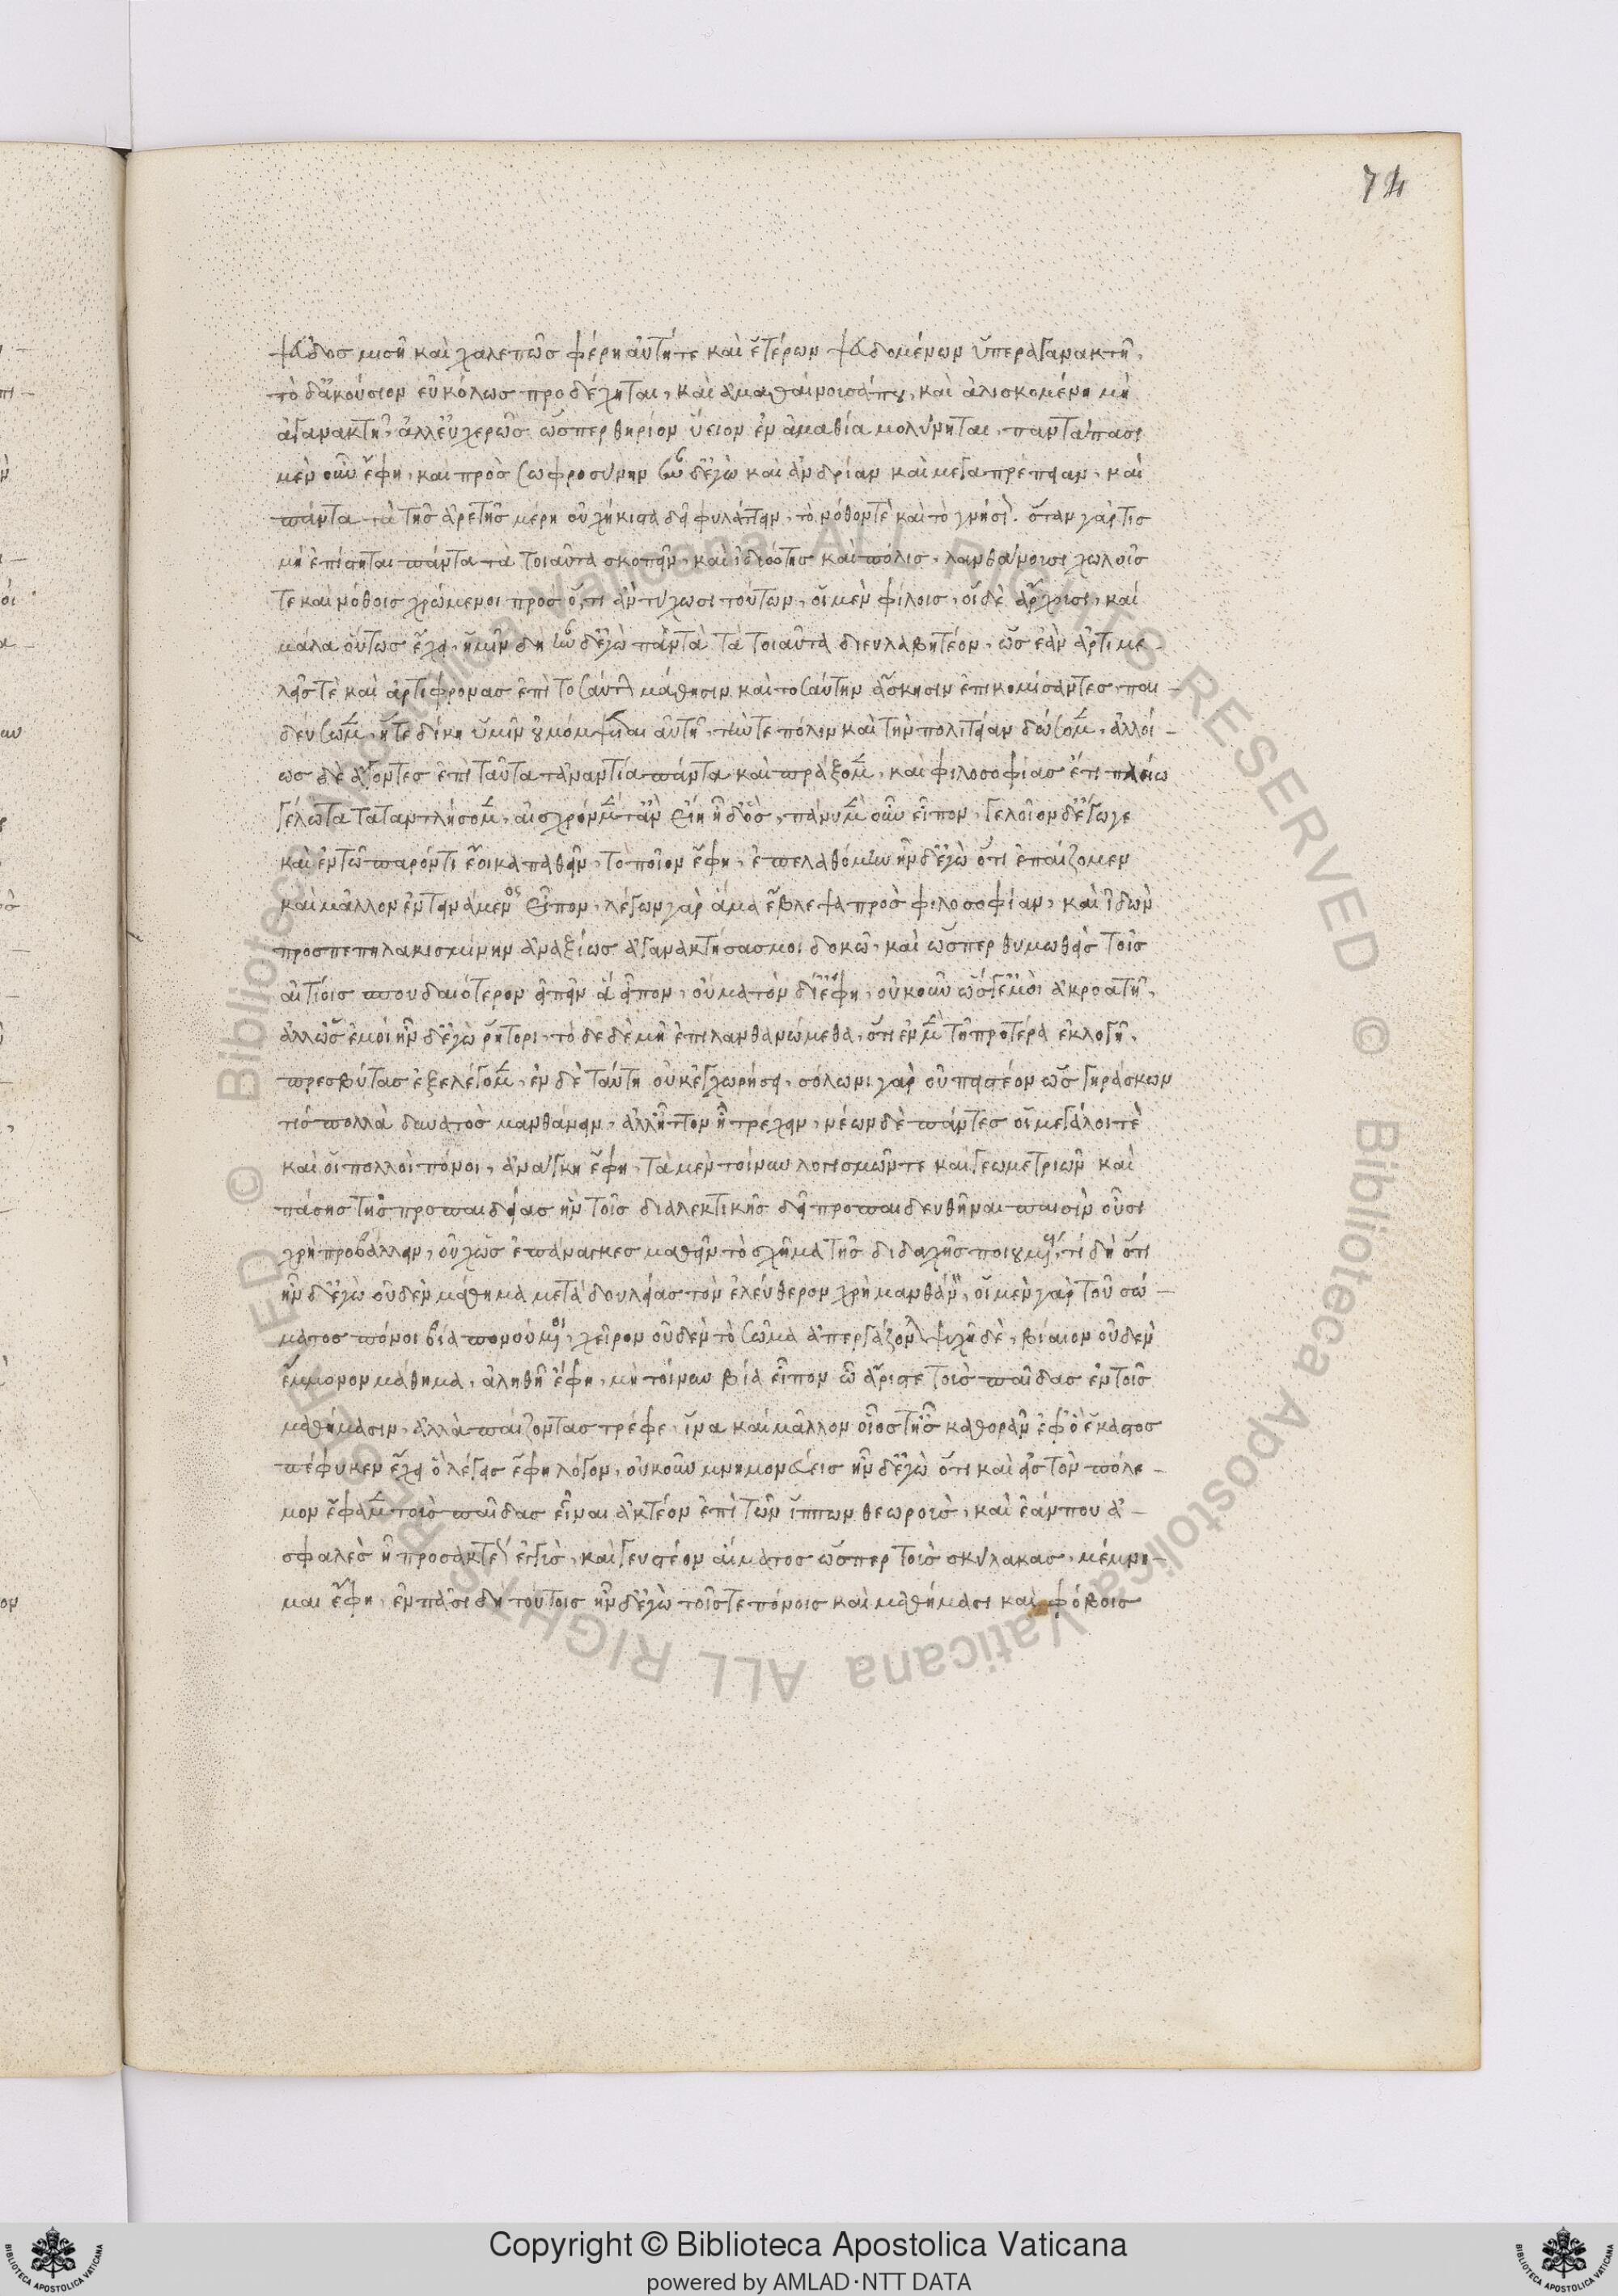 74
ψεῦδος μισῆ καὶ χαλεπῶς φέρη αὐτή τε καὶ ἑτέρων ψευδομένων ὑπεραγανακτῆ,
τὸ δ᾽ ἀκούσιον εὐκόλως προσδέχηται, καὶ ἀμαθαίνουσά που, καὶ ἁλισκομένη μὴ
ἀγανακτῆ, ἀλλ᾽ εὐχερῶς ὥσπερ θηρίον ὕειον ἐν ἀμαθία μολύνηται. πανταπασι
μὲν οὖν ἔφη, καὶ πρὸς σωφροσύνην ἦν δ᾽ ἐγὼ καὶ ἀνδρίαν καὶ μεγαλοπρέπειαν, καὶ
πάντα τὰ τῆς ἀρετῆς μέρη οὐχ ἥκιστα δεῖ φυλάττειν, τὸ νόθον τὲ καὶ τὸ γνήσι. ὅταν γάρ τις
μὴ ἐπίστηται πάντα τὰ τοιαῦτα σκοπεῖν, καὶ ἰδιώτης καὶ πόλις, λανθάνουσι χωλοῖς
τε καὶ νόθοις χρώμενοι πρὸς ὅ,τι ἂν τύχωσι τούτων, οἱ μὲν φίλοις, οἱ δὲ ἄρχουσι, καὶ
μάλα οὕτως ἔχει, ἡμῖν δὴ ἦν δ᾽ ἐγὼ πάντα τὰ τοιαῦτα διευλαβητέον, ὡς ἐὰν ἀρτιμε-
λεῖς τὲ καὶ ἀρτίφρονας ἐπὶ τοσαύτην μάθησιν καὶ τοσαύτην ἄσκησιν ἐπικομίσαντες παι-
δεύωμεν, ἥ τε δίκη ὑμῖν οὐ μέμψεται αὐτὴ, τήν τε πόλιν καὶ τὴν πολιτείαν σώσομεν, ἀλλοί-
ως δὲ ἄγοντες ἐπὶ ταῦτα τἀναντία πάντα καὶ πράξομεν, καὶ φιλοσοφίας ἔτι πλείω
γέλωτα καταντλήσομεν, αἰσχρὸν μέντ᾽ ἂν εἴη ἦ δ᾽ ὅς, πάνυ μὲν οὖν εἶπον, γελοῖον δ᾽ ἔγωγε
καὶ ἐν τῶ παρόντι ἔοικα παθεῖν, τὸ ποῖον ἔφη, ἐπελαθόμην ἦν δ᾽ ἐγὼ ὅτι ἐπαίζομεν
καὶ μᾶλλον ἐντεινάμενος εἶπον, λέγων γὰρ ἅμα ἔβλεψα πρὸς φιλοσοφίαν, καὶ ἰδὼν
προπεπηλακισμένην ἀναξίως ἀγανακτήσας μοι δοκῶ, καὶ ὥσπερ θυμωθεὶς τοῖς
αἰτίοις σπουδαιότερον εἰπεῖν ἃ εἶπον, οὐ μὰ τὸν δί᾽ ἔφη, οὔκουν ὥς γ᾽ ἐμοὶ ἀκροατῆ,
ἀλλ᾽ ὡς ἐμοὶ ἦν δ᾽ ἐγὼ ῥήτορι, τὸ δε δὲ μὴ ἐπιλανθανώμεθα, ὅτι ἐν μὲν τῆ προτέρα ἐκλογῆ,
πρεσβύτας ἐξελέγομεν, ἐν δὲ ταύτη οὐκ ἐγχωρήσει, σόλωνι γὰρ οὐ πειστέον ὡς γηράσκων
τίς πολλὰ δυνατὸς μανθάνειν, ἀλλ᾽ ἧττον ἢ τρέχειν, νέων δὲ πάντες οἱ μεγάλοι τὲ
καὶ οἱ πολλοὶ πόνοι, ἀνάγκη ἔφη, τὰ μὲν τοίνυν λογισμῶν τε καὶ γεωμετριῶν καὶ
πάσης τῆς προπαιδείας ἣν τοῖς διαλεκτικῆς δεῖ προπαιδευθῆναι παισὶν οὖσι
χρὴ προβάλλειν, οὐχ ὡς ἐπάναγκες μαθεῖν τὸ σχῆμα τῆς διδαχῆς ποιουμένους, τί δὴ ὅτι
ἦν δ᾽ ἐγὼ οὐδὲν μάθημα μετὰ δουλείας τὸν ἐλεύθερον χρὴ μανθάνειν, οἱ μὲν γὰρ τοῦ σώ-
ματος πόνοι βία πονούμενοι, χεῖρον οὐδὲν τὸ σῶμα ἀπεργάζονται ψυχῆ δὲ, βίαιον οὐδὲν
ἔμμονον μάθημα, ἀληθῆ ἔφη, μὴ τοίνυν βία εἶπον ὦ ἄριστε τοὺς παῖδας ἐν τοῖς
μαθήμασιν, ἀλλὰ παίζοντας τρέφε, ἵνα καὶ μᾶλλον οἷός τ᾽ ῇς καθορᾶν ἐφ᾽ ὃ ἕκαστος
πέφυκεν ἔχει ὃ λέγεις ἔφη λόγον, οὐκοῦν μνημονεύεις ἦν δ᾽ ἐγὼ ὅτι καὶ εἰς τὸν πόλε-
μον ἔφαμεν τοὺς παῖδας εἶναι ἀκτέον ἐπὶ τῶν ἵππων θεωροὺς, καὶ ἐάν που ἀ-
σφαλὲς ἦ προσακτέον ἐγγὺς, καὶ γευστέον αἵματος ὥσπερ τοὺς σκύλακας, μέμνη-
μαι ἔφη, ἐν πᾶσι δὴ τούτοις ἦν δ᾽ ἐγὼ τοῖς τε πόνοις καὶ μαθήμασι καὶ φόβοις
Copyright © Biblioteca Apostolica Vaticana
powered by AMLAD·NTT DATA